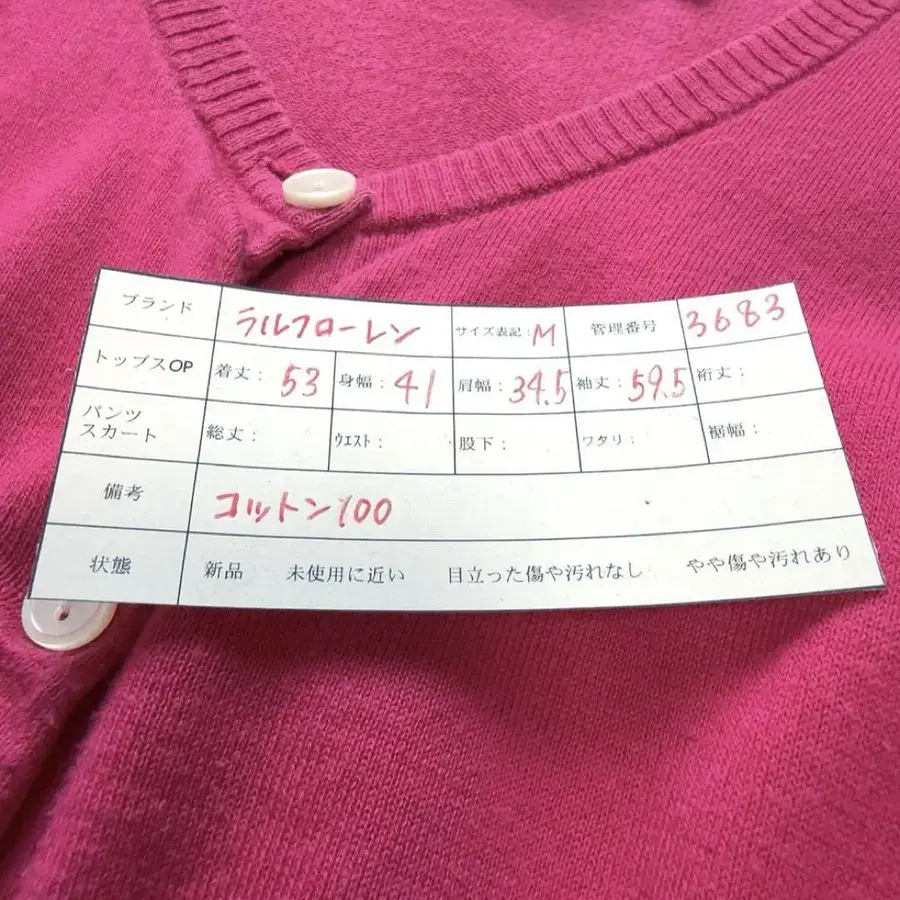 ブランド ラルフローレン サイズ表記:M 管理番号 3683
トップスOP 着丈: 53 身幅: 41 肩幅: 34.5 袖丈: 59.5 裄丈:
パンツ
スカート 総丈: ウエスト: 股下: ワタリ: 裾幅:
備考 コットン100
状態 新品 未使用に近い 目立った傷や汚れなし やや傷や汚れあり